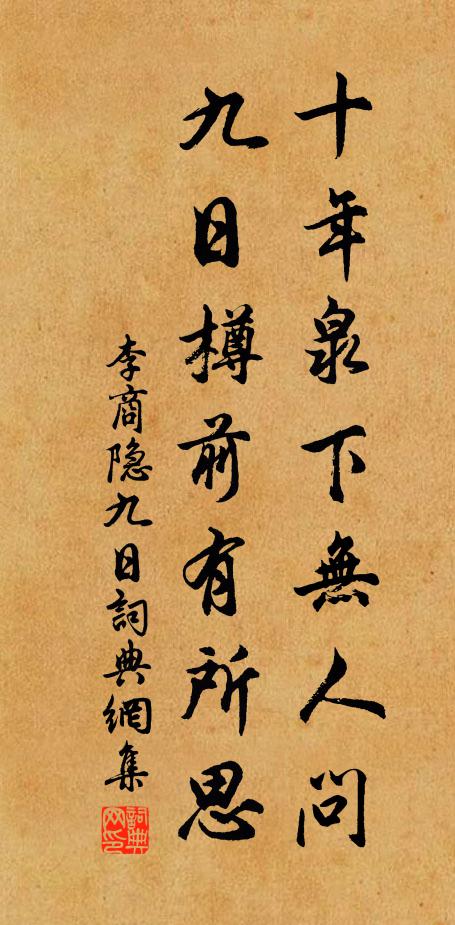 十年泉下無人問
九日樽前有所思
李商隐九日詞典網集
詞典网印